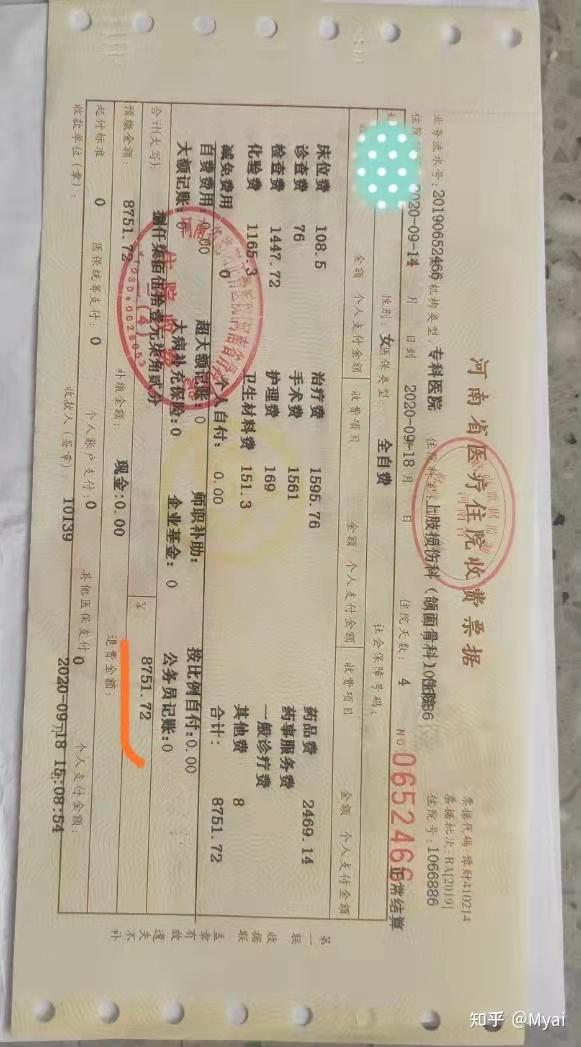 河南省医疗住院收费票据
票据代码:豫财410214
票据批次:RA[2019]
业务流水号:20190652466 机构类型:专科医院
住院号:1066886
NO 0652466
正常结算
2020-09-14 月 日到 2020-09-18 月 日 住院天数: 4
性别:女 医保类型: 全自费 社会保障号码:
金额 个人支付金额 收费项目 金额 个人支付金额 收费项目 金额 个人支付金额
床位费 108.5 治疗费 1595.76 药品费 2469.14
诊查费 76 手术费 1561 药事服务费
检查费 1447.72 护理费 169 一般诊疗费
化验费 1165.3 卫生材料费 151.3 其他费 8
减免费用 0 个人自付: 0.00 合计: 8751.72
自费费用: 0.00 超大额记账: 0 师职补助: 按比例自付:0.00
大额记账: 大病补充保险:0 企业基金: 0 公务员记账:0
合计(大写): 捌仟柒佰伍拾壹元柒角贰分 ¥: 8751.72
预缴金额: 8751.72 补缴金额: 现金:0.00 退费金额:
起付标准 0 医保统筹支付: 0 个人账户支付:0 其他医保支付:0 个人支付金额:
收款单位(章): 收款人(签章): 10139 2020-09-18 15:08:54
第一联 收据联 盖章有效 遗失不补
知乎 @Myai